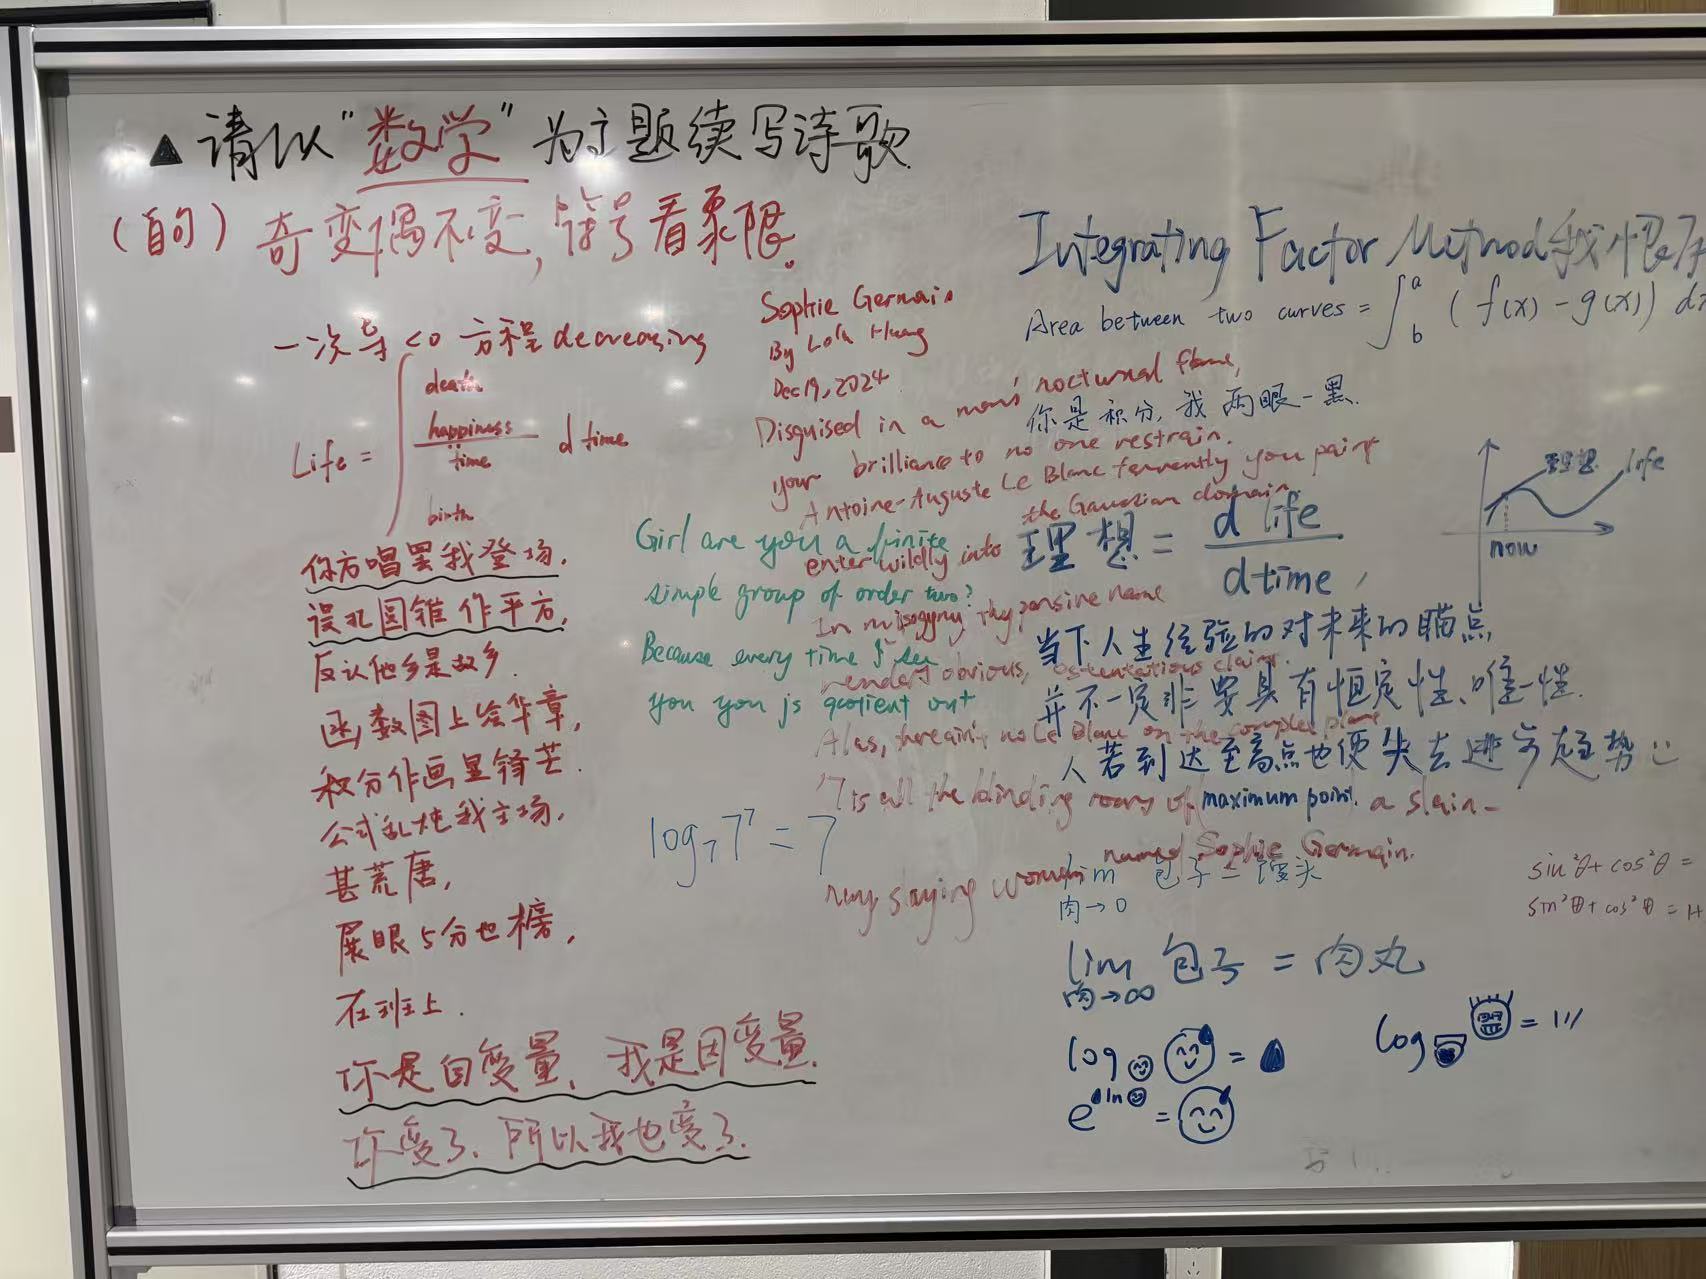 ▲ 请以“数学”为主题续写诗歌
(首句) 奇变偶不变,符号看象限。
一次导<0 方程decreasing
Life = ∫ death birth happiness / time d time
你方唱罢我登场,
误把圆锥作平方,
反认他乡是故乡.
函数图上绘华章,
积分作画显锋芒.
公式乱炖我主场,
甚荒唐,
展眼5分也榜,
在班上.
你是自变量, 我是因变量.
你变了, 所以我也变了.
Sophie Germain
By Lola Huang
Dec 19, 2024
Disguised in a man's nocturnal flame,
your brilliance to no one restrain.
Antoine-Auguste Le Blanc fervently you paint
the Gaussian domain.
enter wildly into
In misogyny thy pensive name
render obvious, ostentatious claim.
Alas, there ain't no Le Blanc on the complex plane
'Tis all the blinding roars of a slain-
named Sophie Germain.
nay slaying woman
Girl are you a finite
simple group of order two?
Because every time I see
you you js quotient out
log₇7⁷ = 7
Integrating Factor Method我恨
Area between two curves = ∫ᵇᵃ (f(x) - g(x)) dx
你是积分, 我两眼一黑.
理想 = d life / d time,
理想 life
now
当下人生经验的对未来的瞄点
并不一定非要具有恒定性、唯一性.
人若到达至高点也便失去进步趋势
maximum point.
lim 包子 = 馒头
肉→0
lim 包子 = 肉丸
肉→∞
log =
e ln =
log =
sin²θ + cos²θ =
sin²θ + cos²θ =